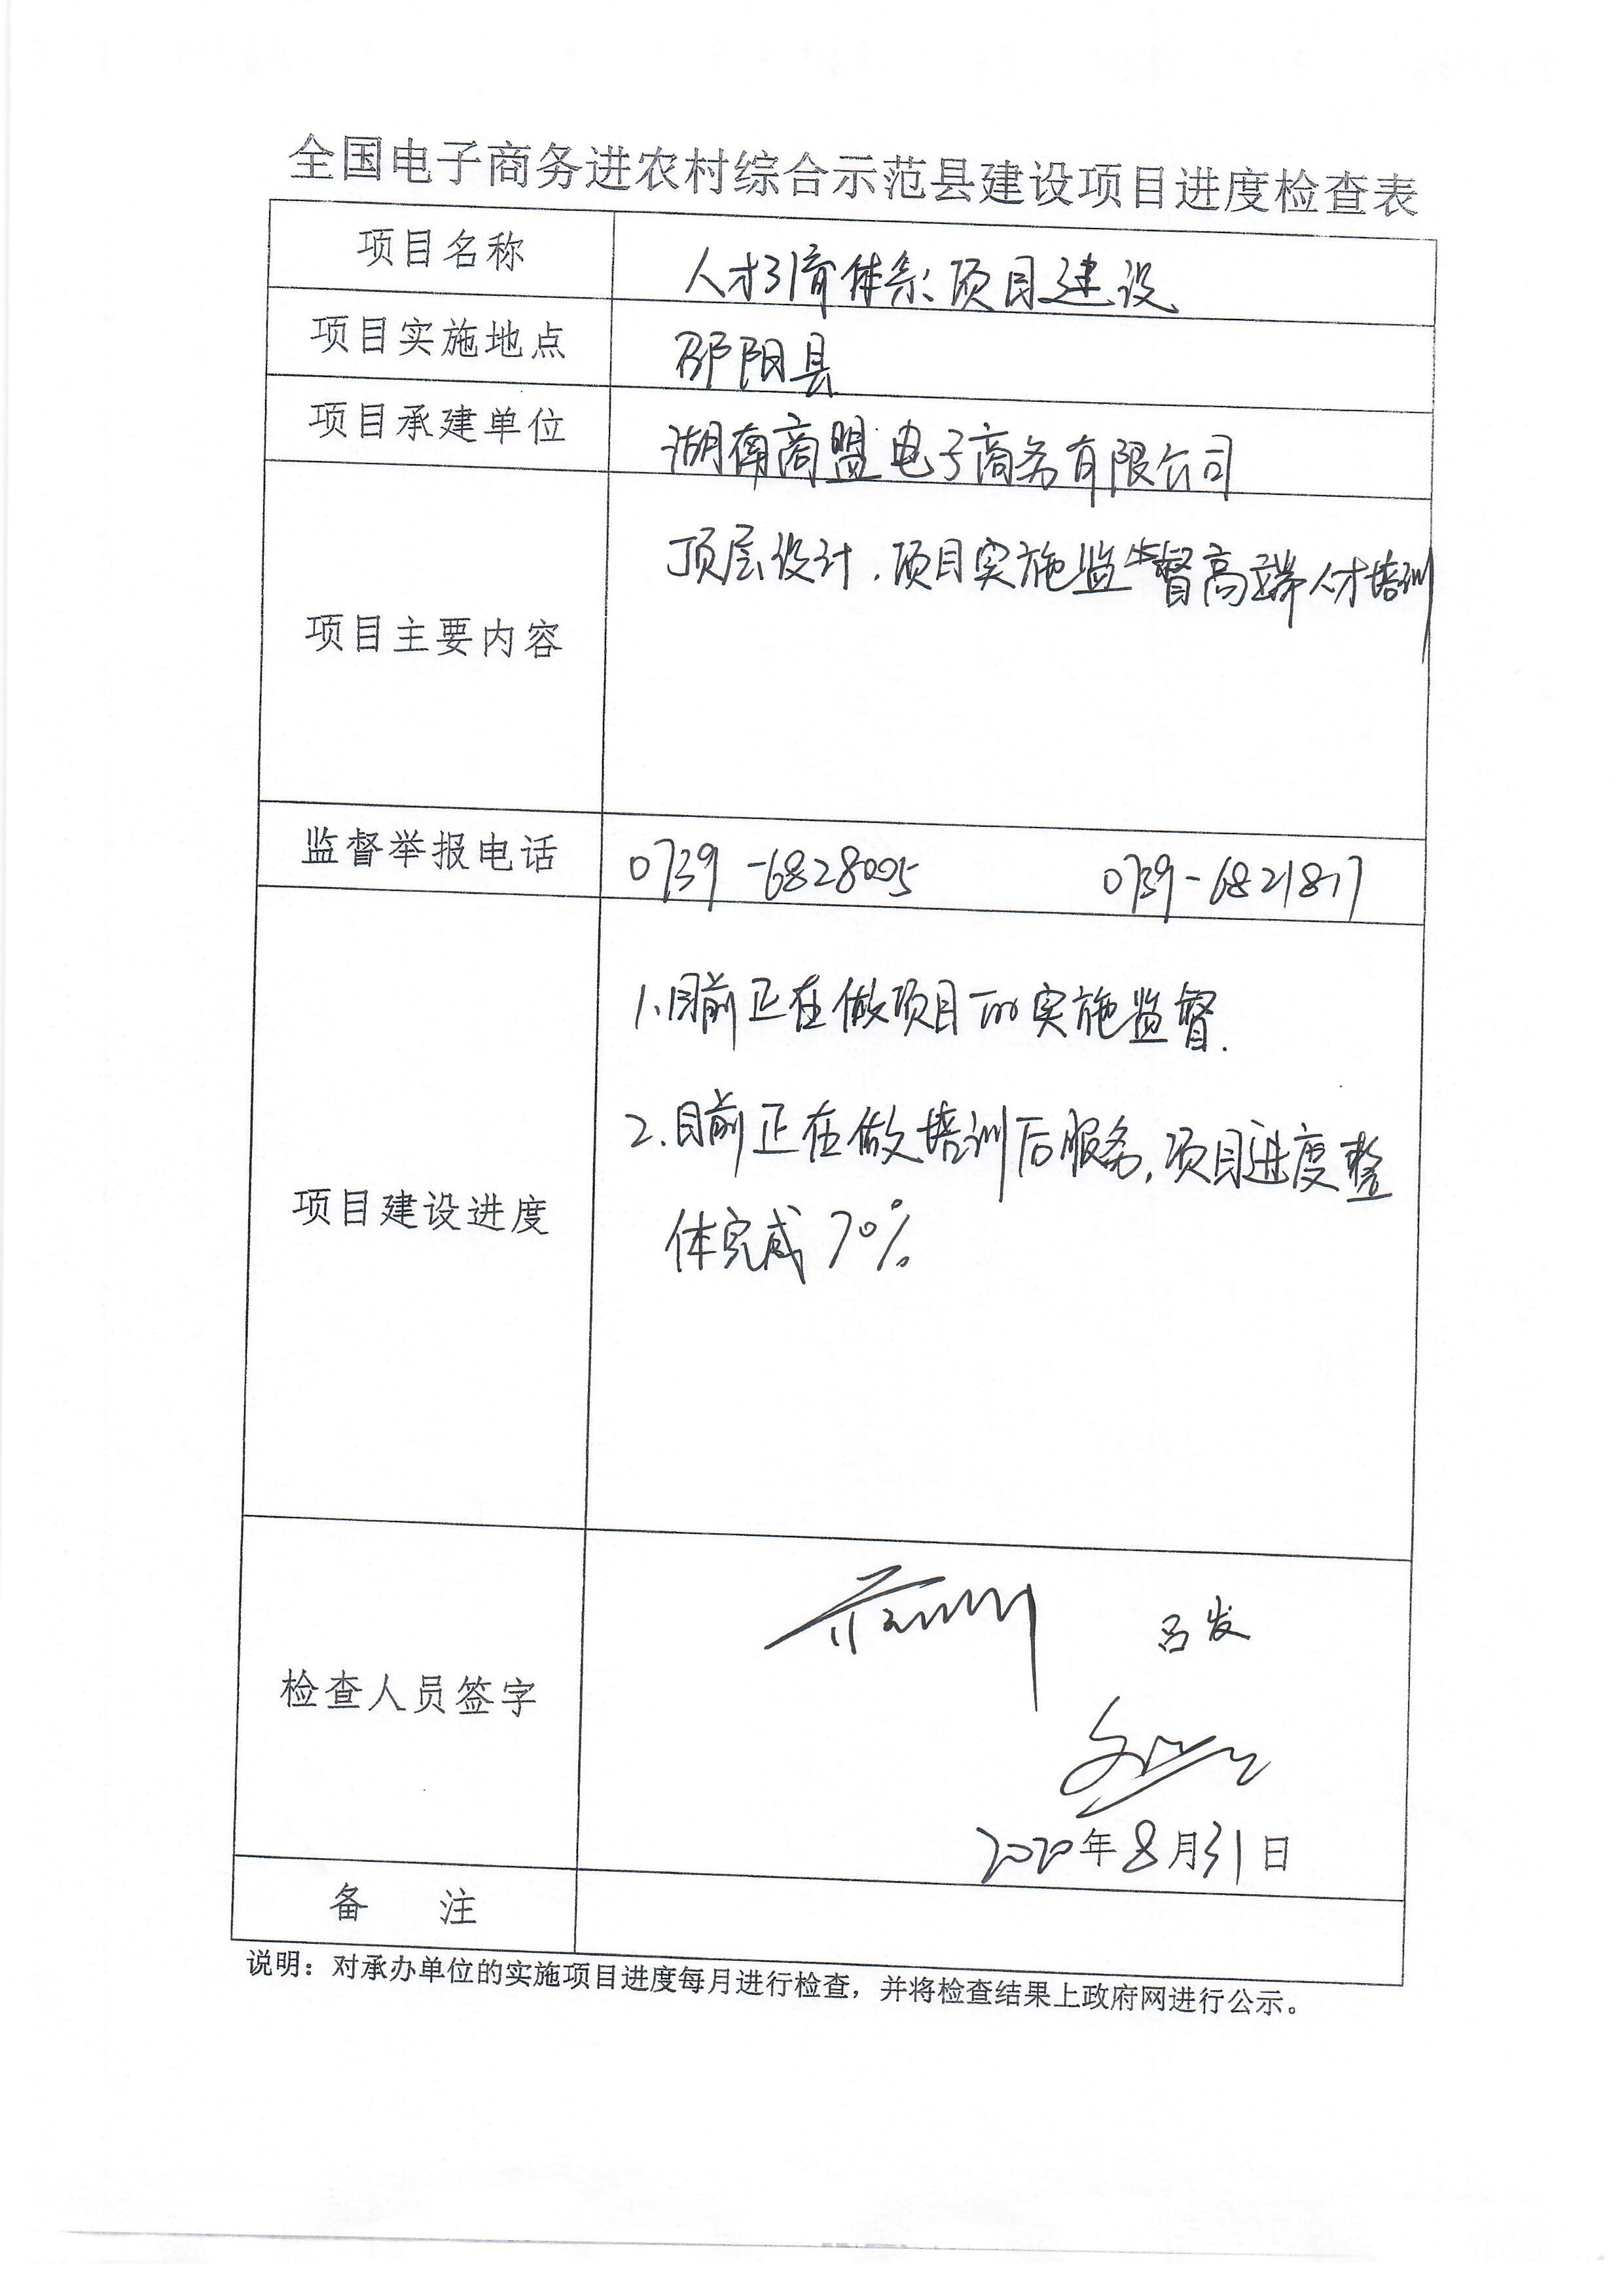 全国电子商务进农村综合示范县建设项目进度检查表
项目名称 人才引育体系项目建设
项目实施地点 邵阳县
项目承建单位 湖南商盟电子商务有限公司
项目主要内容 顶层设计.项目实施监督高端人才培训
监督举报电话 0739-6828005 0739-6821817
1.目前正在做项目的实施监督.
2.目前正在做培训后服务,项目进度整
项目建设进度
体完成70%
吕发
检查人员签字
2020年8月31日
备 注
说明：对承办单位的实施项目进度每月进行检查，并将检查结果上政府网进行公示。